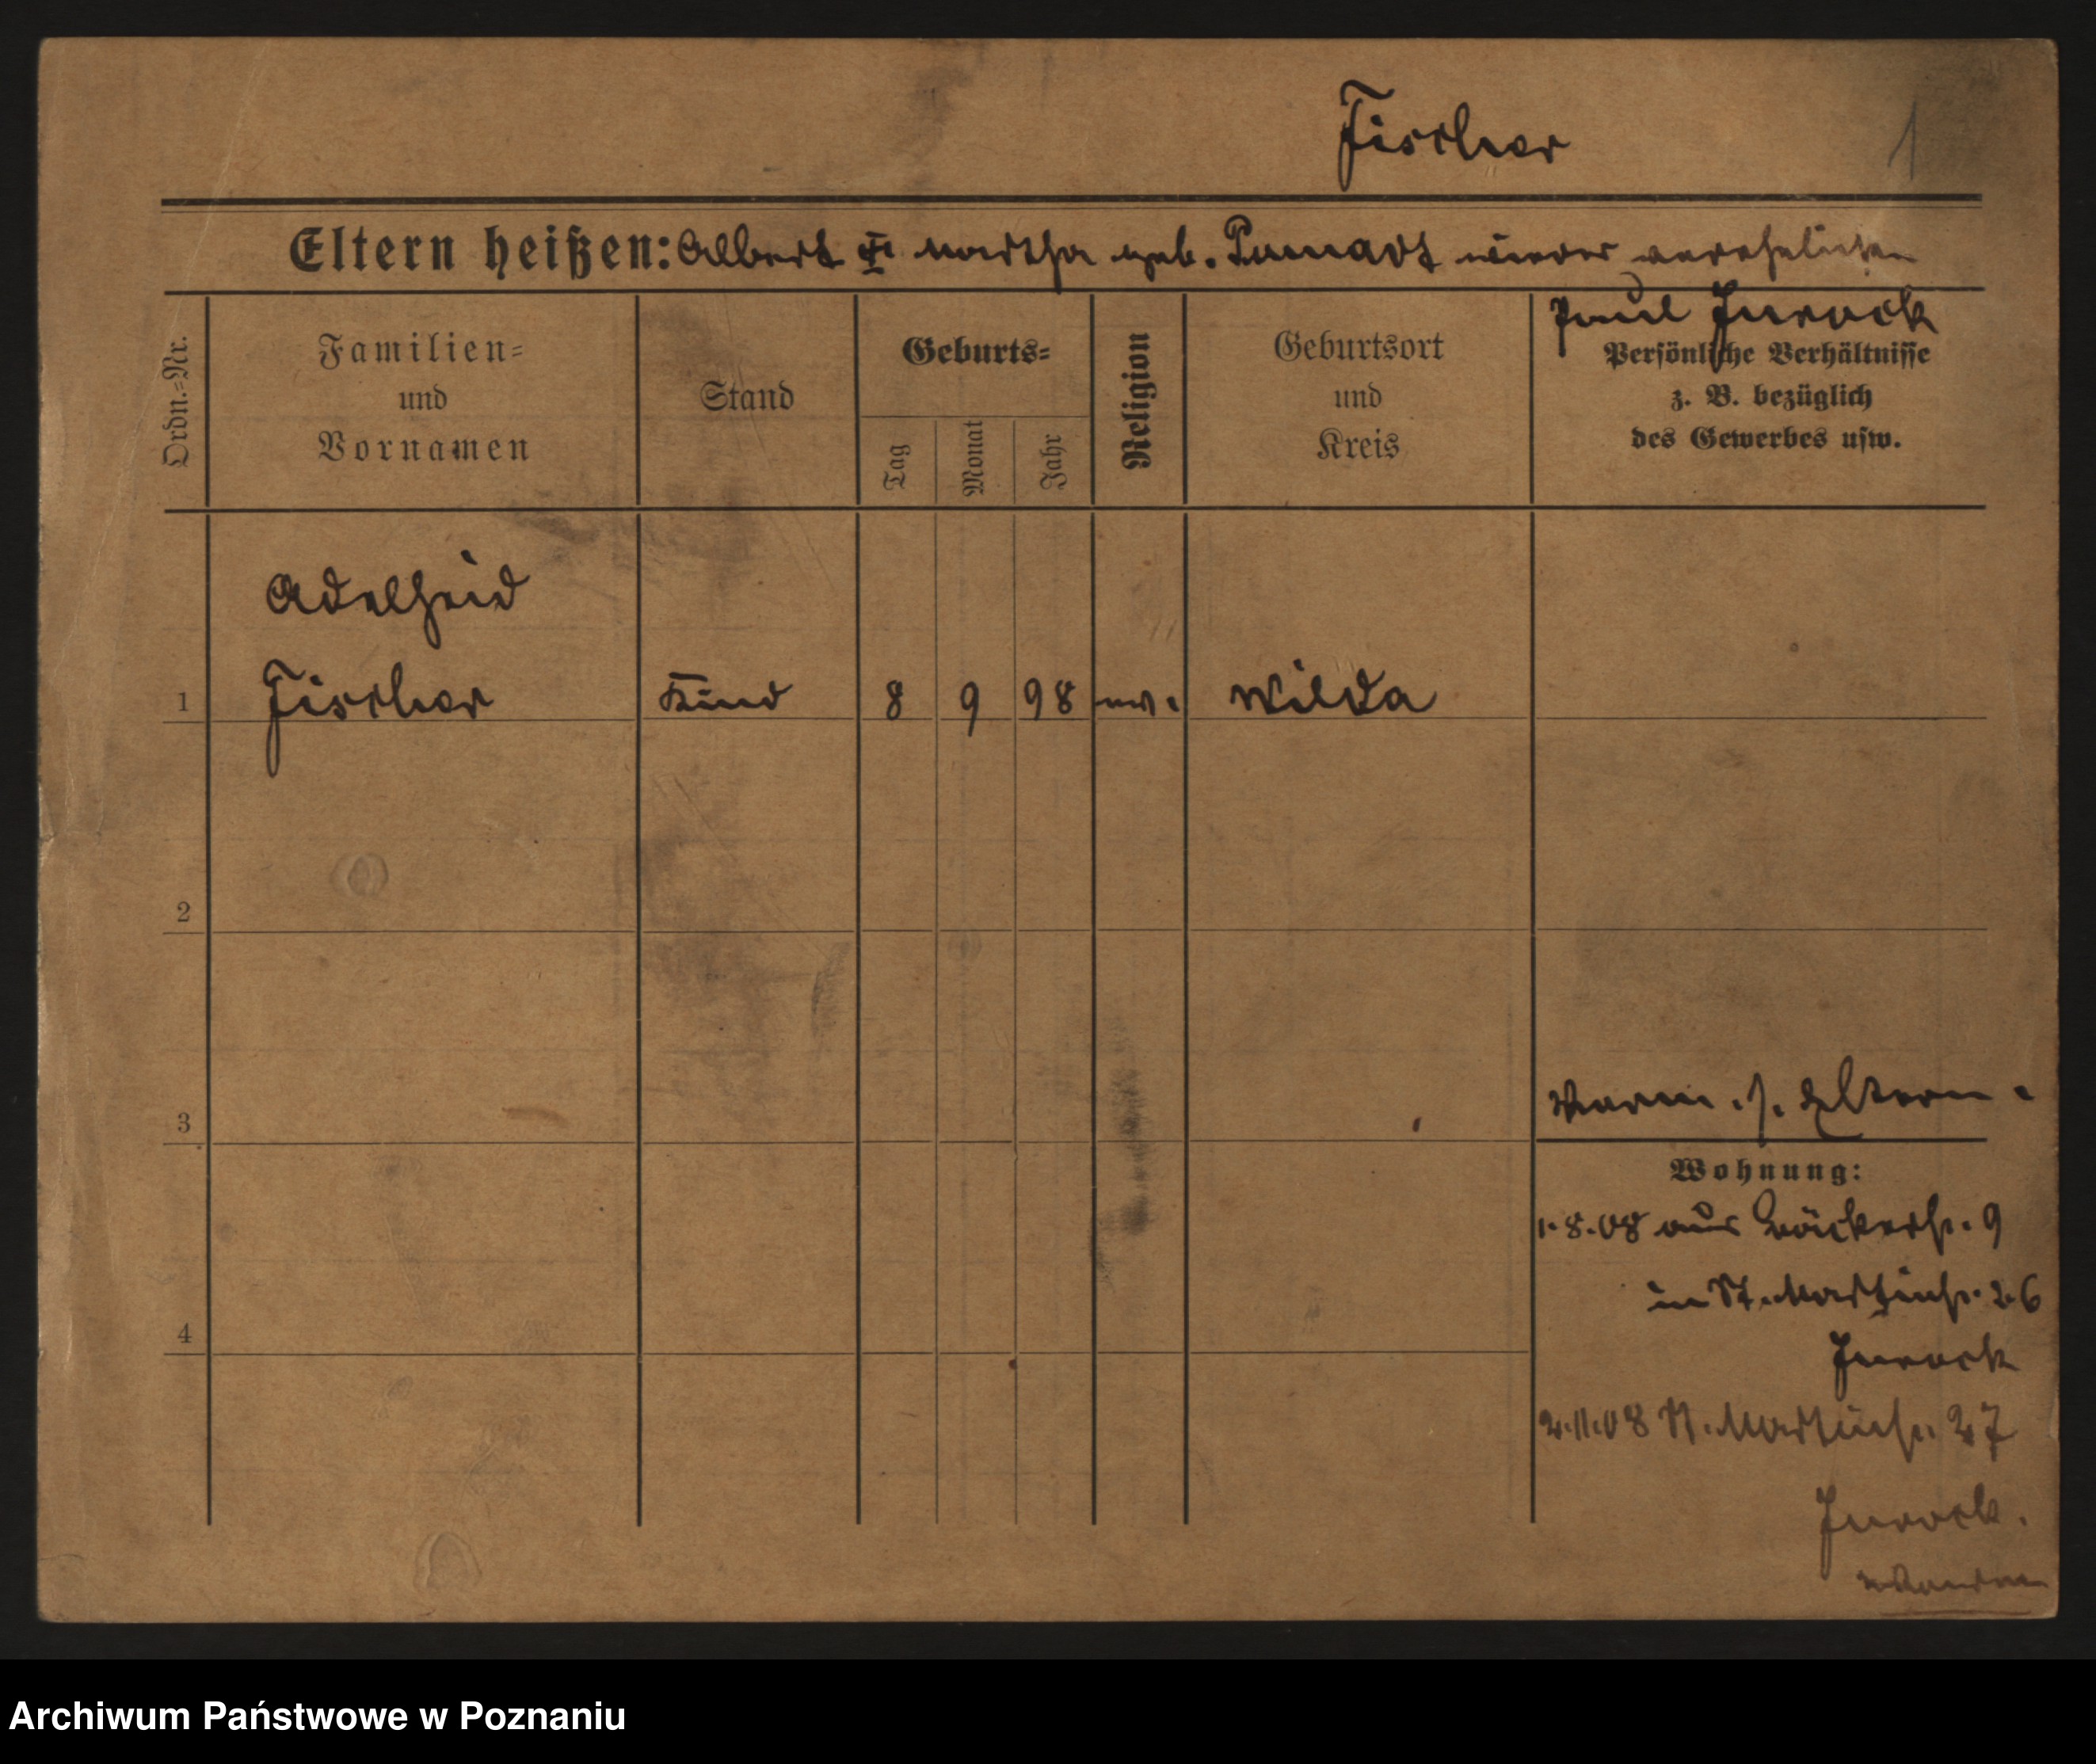 Fischer
1
Eltern heißen: Albert & Martha geb. wieder verehelichte
Paul Jurock
Ordn.=Nr.
Familien=
und
Vornamen
Stand
Geburts=
Tag
Monat
Jahr
Religion
Geburtsort
und
Kreis
Persönliche Verhältnisse
z. B. bezüglich
des Gewerbes usw.
Adelheid
1 Fischer Kind 8 9 98 ev. Wilda
2
3
Verm. s. Eltern.
Wohnung:
1.8.08 aus Bäckerstr. 9
in St. Martinstr. 26
Jurock
4
2.11.08 St. Martinstr. 27
Jurock.
Archiwum Państwowe w Poznaniu